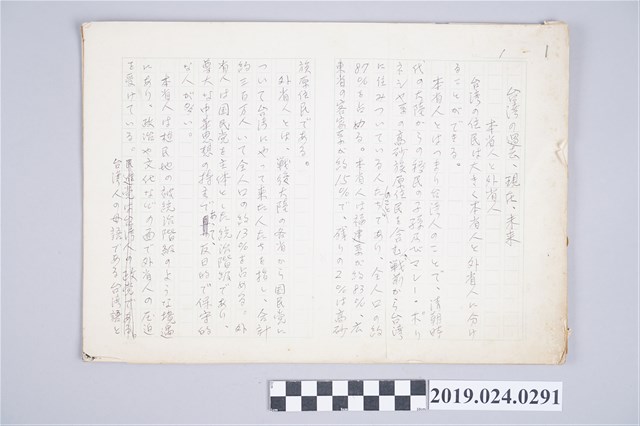 1-1
台湾の過去、現在、未来
本省人と外省人
台湾の住民は大きく本省人と外省人に分け
ることができる。
本省人とはつまり台湾人のことで、清朝時
代の大陸からの移民の子孫及びマレー・ポリ
ネシヤ系の高砂族原住民を含む、戦前から台湾
に住みついている人たちであり、全人口の約
87%を占める。本省人は福建系が約83%、広
東省の客家系が約15%で、残りの2%は高砂
族原住民である。
外省人とは、戦後大陸の各省から国民党に
ついて台湾にやって来た人たちを指し、合計
約三百万人いて全人口の約13%を占める。外
省人は国民党を主体とした統治階級であり、
尊大な中華思想の持主であって反目的で保守的
な人が多い。
本省人は植民地の被統治階級のような境遇
にあり、政治や文化などの面で外省人の圧迫
を受けている。
台湾人の母語である台湾語と
2019.024.0291